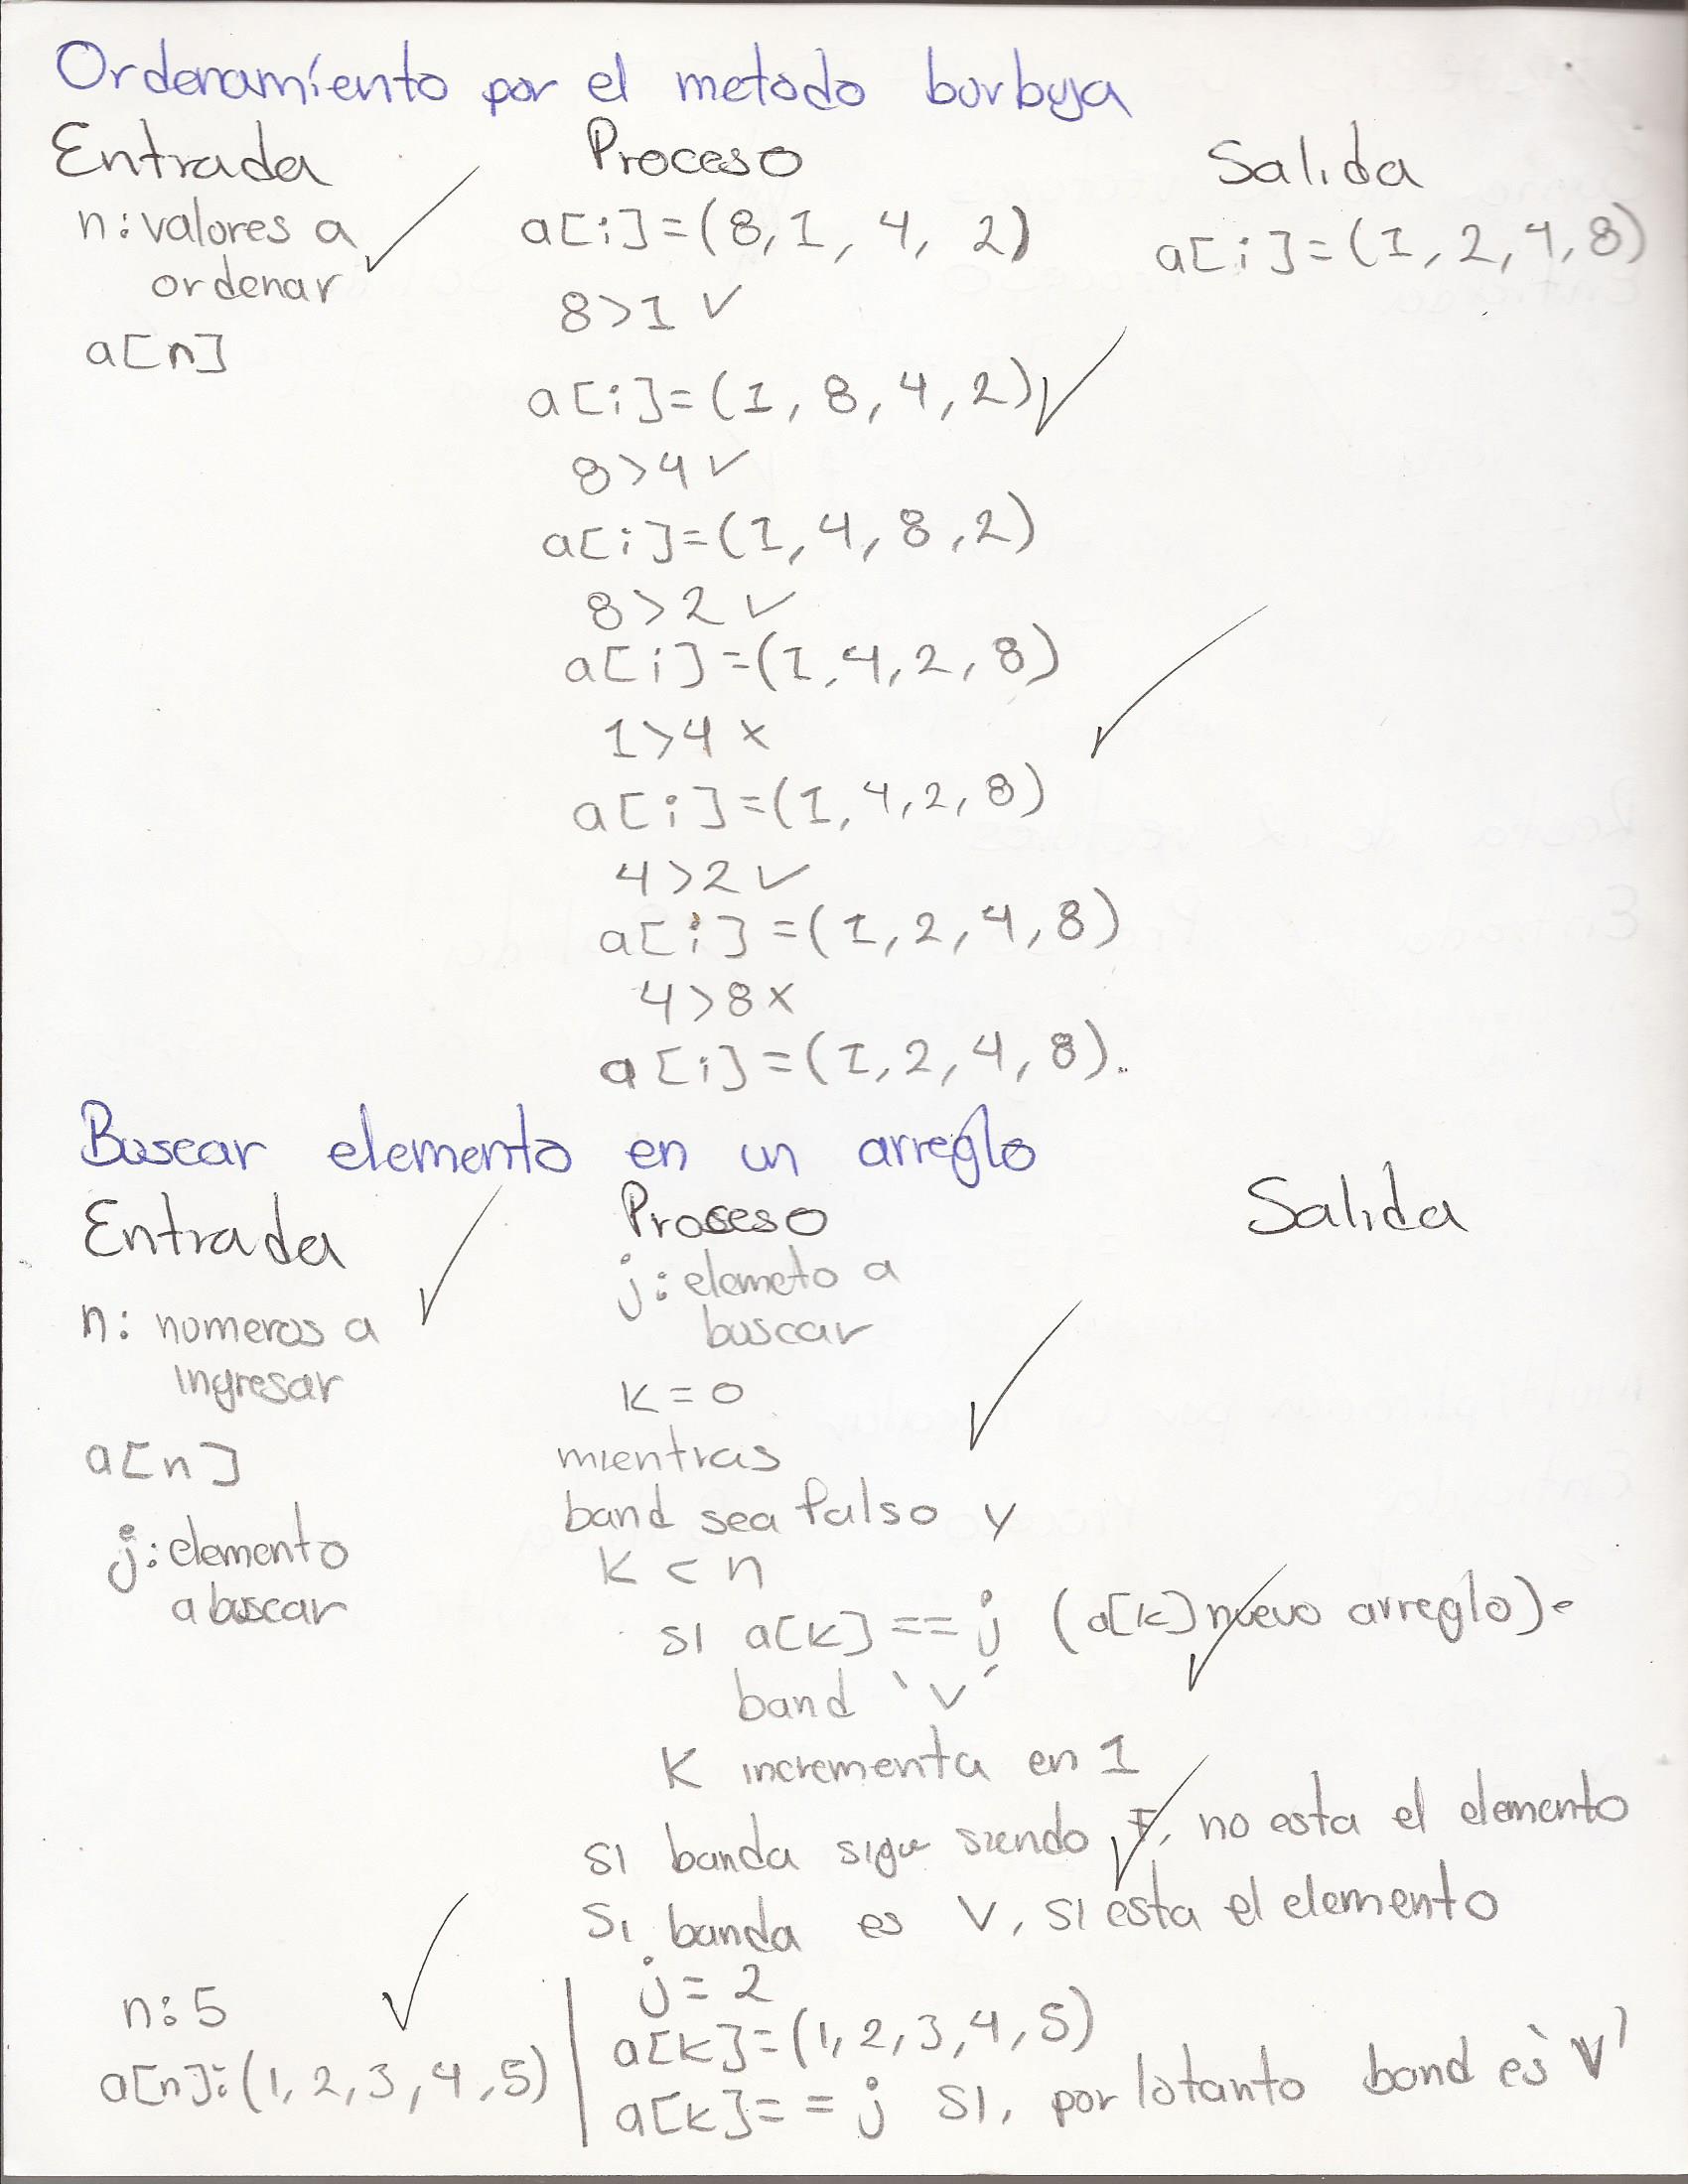 Ordenamiento por el metodo burbuja
Entrada Proceso Salida
n: valores a ordenar
a[n]
a[i]=(8,1,4,2)
8>1 ✓
a[i]=(1,8,4,2)
8>4 ✓
a[i]=(1,4,8,2)
8>2 ✓
a[i]=(1,4,2,8)
1>4 x
a[i]=(1,4,2,8)
4>2 ✓
a[i]=(1,2,4,8)
4>8 x
a[i]=(1,2,4,8).
a[i]=(1,2,4,8)
Buscar elemento en un arreglo
Entrada Proceso Salida
n: numeros a
ingresar
a[n]
j: elemento
a buscar
j: elemeto a
buscar
K=0
mientras
band sea falso y
K < n
si a[k]==j (a[k] nuevo arreglo)
band 'v'
K incrementa en 1
si banda sigue siendo F, no esta el elemento
Si banda es V, si esta el elemento
n: 5
a[n]:(1,2,3,4,5)
j=2
a[k]=(1,2,3,4,5)
a[k]==j SI, por lo tanto band es 'V'